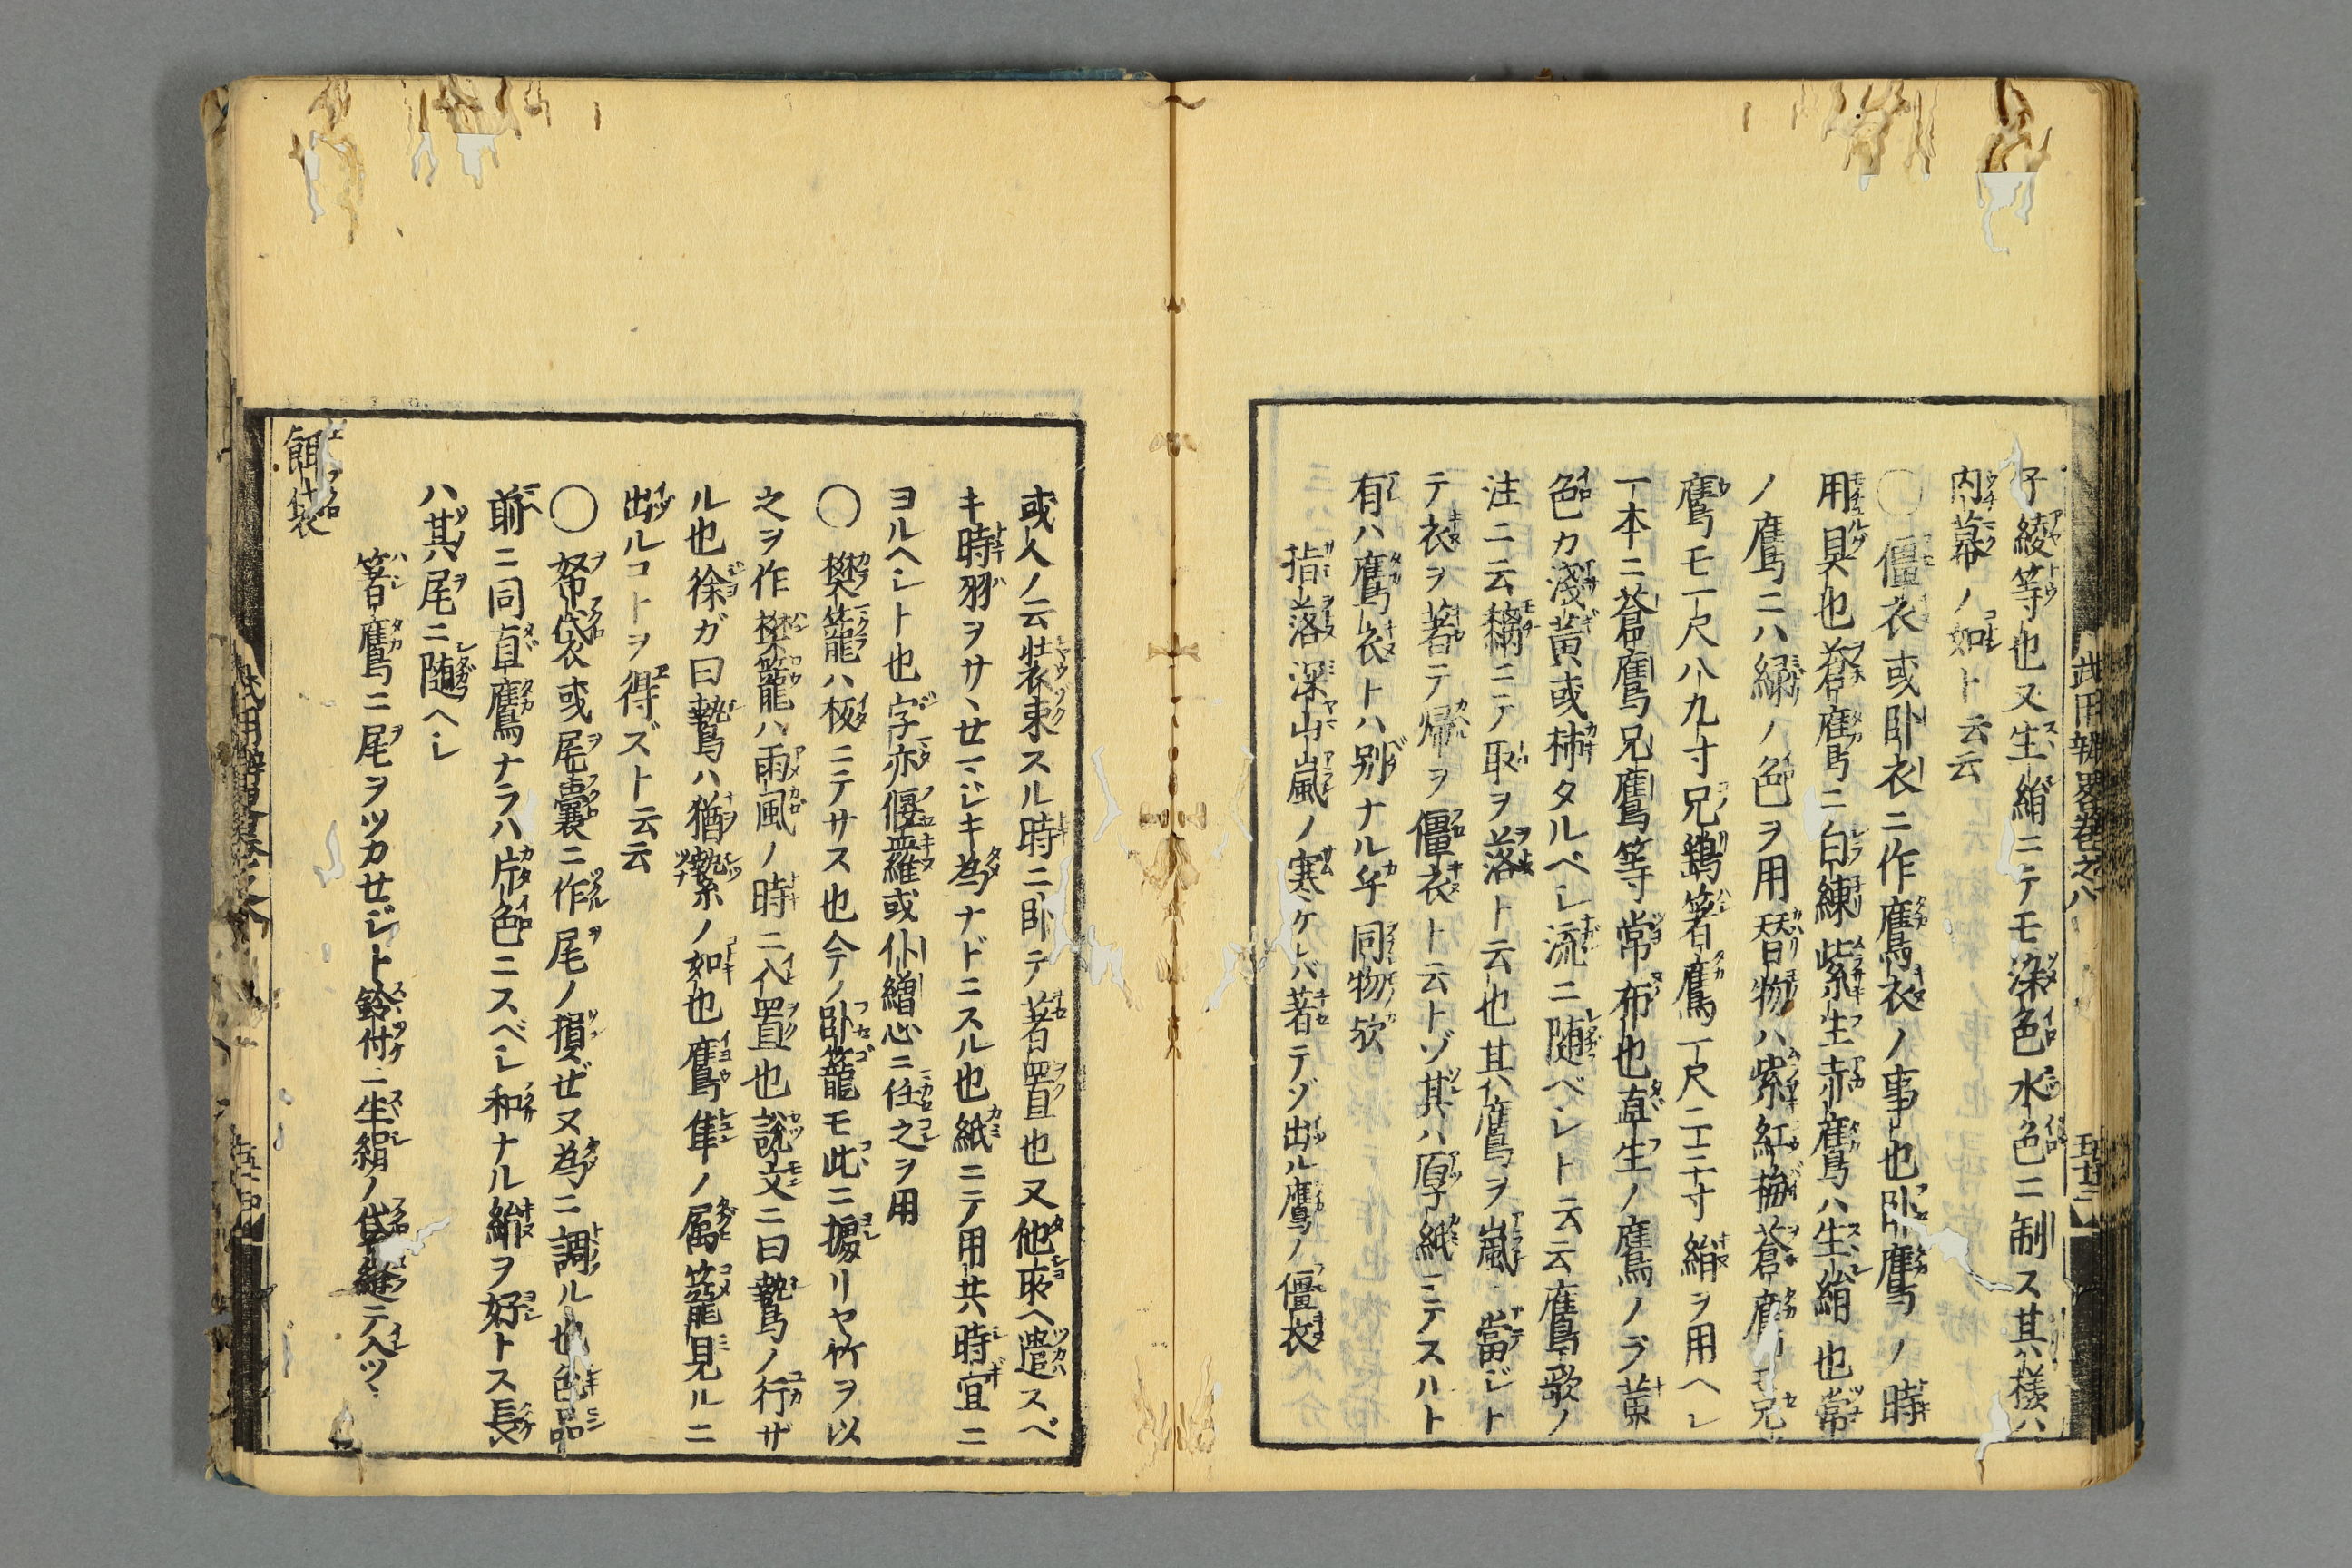 子綾等也又生絹ニテモ染色水色ニ制ス其樣ハ
内幕ノ如ト云云
○僵衣或卧衣ニ作鷹衣ノ事也卧鷹ノ時
用具也蒼鷹ニ白練紫生赤鷹ハ生絹也常
ノ鷹ニハ緑ノ色ヲ用替物ハ紫紅梅蒼鷹モ兄
鷹モ一尺八九寸兄鷂箸鷹一尺二三寸絹ヲ用ヘシ
一本ニ蒼鷹兄鷹等常布也直生ノ鷹ノヲ黄
色カ淺黄或柿タルベシ流ニ随ベシト云云鷹歌ノ
注ニ云黐ニテ取ヲ落ト云也其鷹ヲ嵐ニ當ジト
テ衣ヲ著テ帰ヲ僵衣ト云トゾ其ハ厚紙ニテスルト
有ハ鷹衣トハ別ナル乎同物欤
指落深山嵐ノ寒ケレバ著テゾ出ル鷹ノ僵衣
武用辨畧卷之八
五十三
或人ノ云裝束スル時ニ卧テ著置也又他所ヘ遣スベ
キ時羽ヲサヽセマジキ為ナドニスル也紙ニテ用共時宜ニ
ヨルヘシト也字亦偃羅或仆繒心ニ任之ヲ用
○樊籠ハ板ニテサス也今ノ卧籠モ此ニ據リヤ竹ヲ以
之ヲ作樊籠ハ雨風ノ時ニ入置也説文ニ曰鷙鳥ノ行サ
ル也徐ガ曰鷙鳥ハ猶縶ノ如也鷹隼ノ属籠見ルニ
出ルコトヲ得ズト云云
○帑袋或尾囊ニ作尾ノ損ゼヌ為ニ調ル也色品
前ニ同直鷹ナラハ片色ニスベシ和ナル絹ヲ好トス長
ハ其尾ニ随ヘシ
箸鷹ニ尾ヲツカセジト鈴付ニ生絹ノ袋縫テ入ツヽ
餌袋